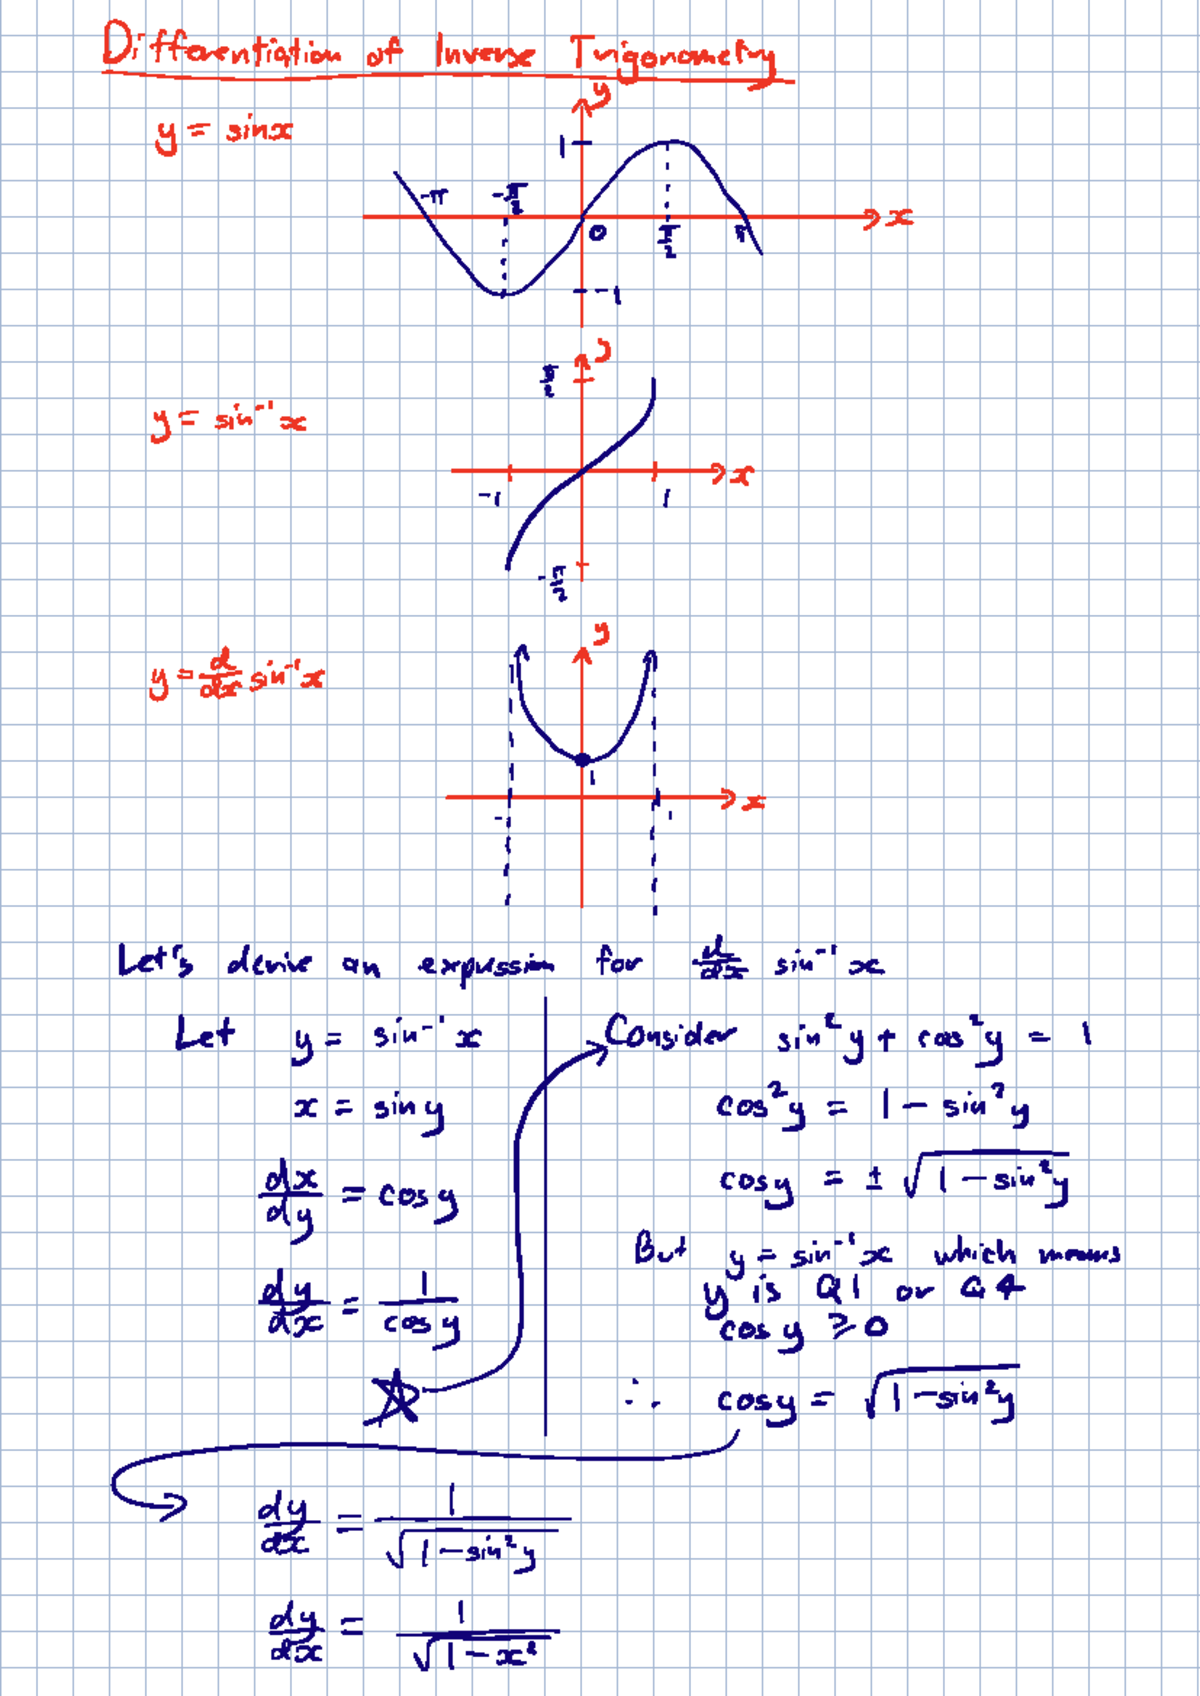 Differentiation of Inverse Trigonometry
y = sinx
y
1
-π
-π/2
0
π/2
π
x
-1
y = sin⁻¹x
y
π/2
-1
1
x
-π/2
y = d/dx sin⁻¹x
y
1
x
-1
Let's derive an expression for d/dx sin⁻¹ x
Let y = sin⁻¹x
x = siny
dx/dy = cosy
dy/dx = 1/cosy
Consider sin²y + cos²y = 1
cos²y = 1 - sin²y
cosy = ± √(1 - sin²y)
But y = sin⁻¹x which means
y is Q1 or Q4
cosy ≥ 0
∴ cosy = √(1 - sin²y)
dy/dx = 1/√(1 - sin²y)
dy/dx = 1/√(1 - x²)